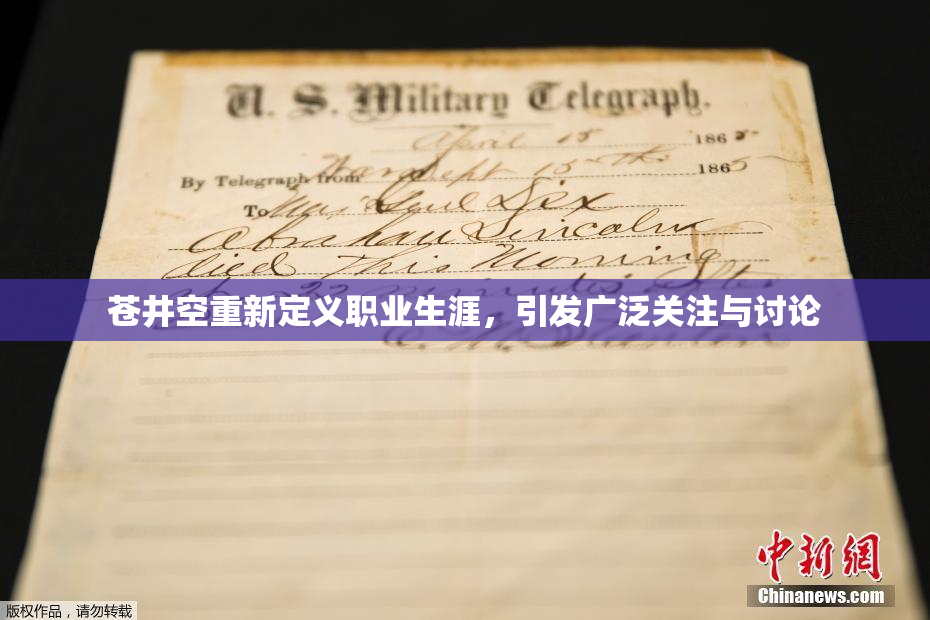 U. S. Military Telegraph.
April 15 1865.
By Telegraph from War Dept 15th 1865
To Maj Genl Dix
Abraham Lincoln
died This Morning
at 22 minutes after
苍井空重新定义职业生涯，引发广泛关注与讨论
E. M. Stanton
中新網
Chinanews.com
版权作品，请勿转载